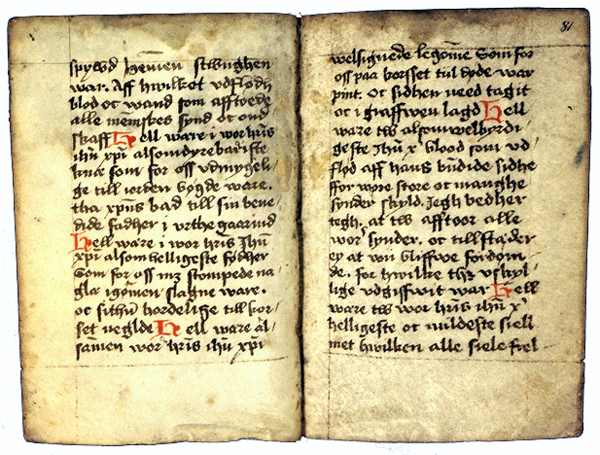 spywd igēmen stwnghen
war. Aff hwilket vdflødh
blod oc wand som afftoede
alle mēniskes synd oc ond
skaff Hell ware i wor hr̄is
ihū xpi alsom dyrebariste
knæ som for oss vdmygeli
ge till iorden bøgde ware.
tha xpūs bad till sin bene
dide fadher i vrthegaarind
Hell ware i wor hr̄is Ihū
xpi alsom helligeste fødher
Som for oss mz stompede na
glæ igømen slagne ware.
oc sithū hordelige till kor
set neglde Hell ware al
samen wor hr̄is ihū xpi
81
welsignede legōme Som for
oss paa korsset til døde war
pint. oc sidhen need tagit
oc i graffwen lagd Hell
ware tw alsom welbyrdi
geste Ihū x' blood som vd
flød aff hans bundide sidhe
ffor wore store oc manghe
synder skyld. Jegh bedher
tegh. at tw afftoor alle
wor' synder. oc tillstæder
ey at von bliffwe fordom
de. for hwilke thu vskyl
lige vdgiffwit war Hell
ware tw wor hr̄is ihū x'
helligeste oc mildeste siell
met hwilken alle siele fræl